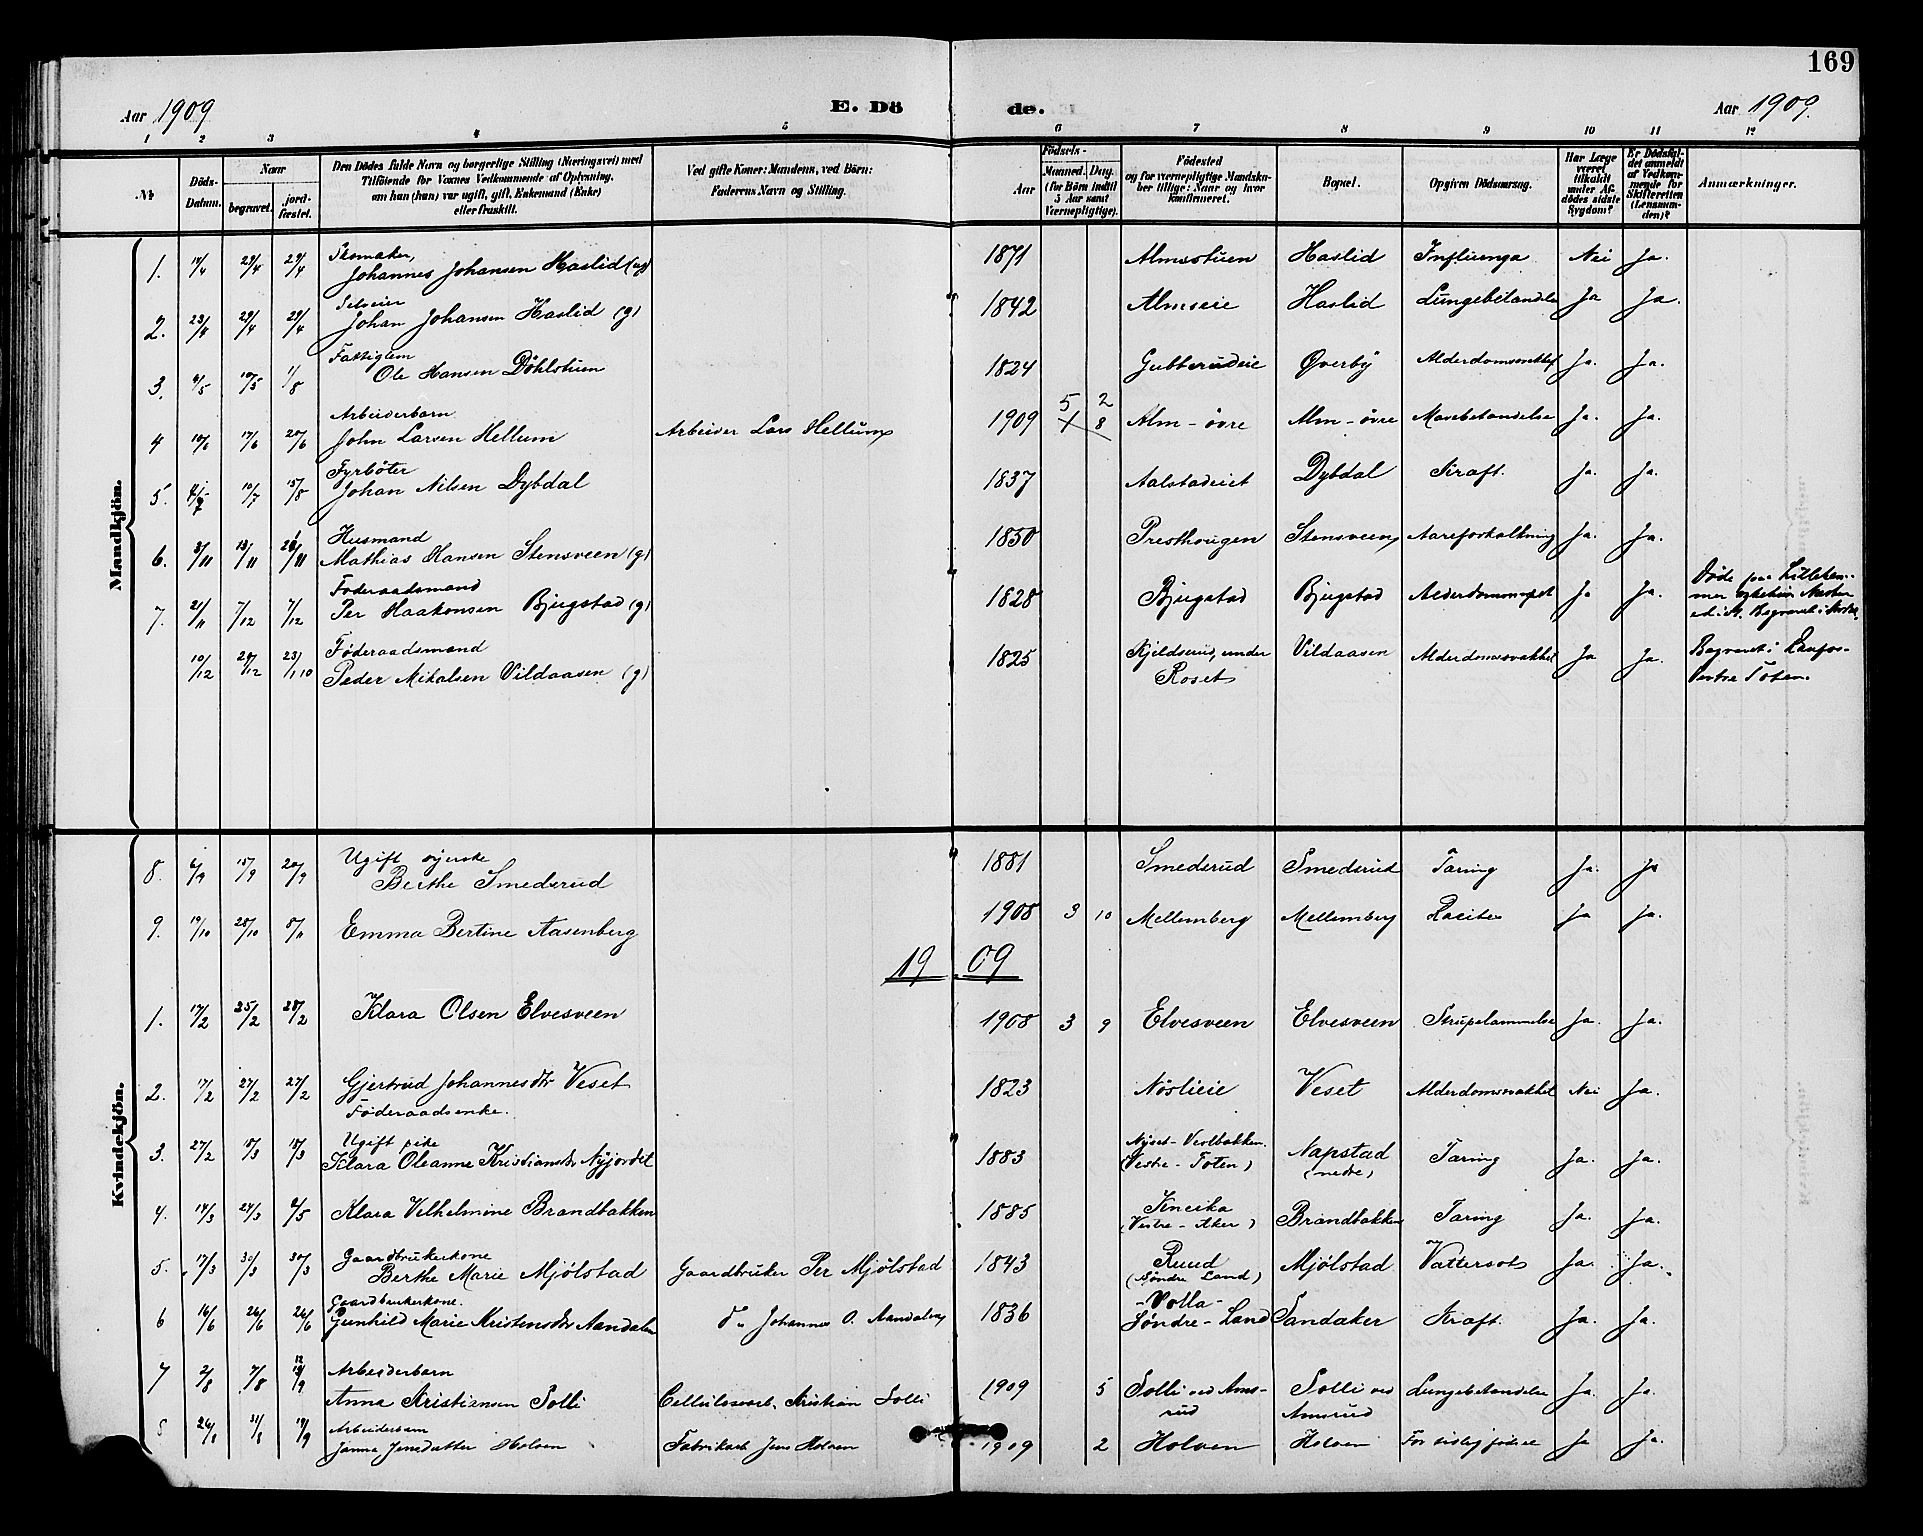 169
Aar 1909 E. Dö
de. Aar 1909.
1 2 3 4 5 6 7 8 9 10 11 12
№
Döds-Datum.
Naar
begravet.
jordfæstet.
Den Dödes fulde Navn og borgerlige Stilling (Næringsvei) med
Tilföiende for Voxnes Vedkommende af Oplysning,
om han (hun) var ugift, gift, Enkemand (Enke)
eller fraskilt.
Ved gifte Koner: Mandens, ved Börn:
Faderens Navn og Stilling.
Födsels-
Aar
Maaned. Dag.
(for Börn indtil
5 Aar samt
Værnepligtige).
Födested
og for værnepligtige Mandskaber tillige: Naar og hvor
konfirmeret.
Bopæl.
Opgiven Dödsaarsag.
Har Læge
været
tilkaldt
under Afdödes sidste
Sygdom?
Er Dödsfaldet anmeldt
af Vedkommende for
Skifteretten
(Lensmanden)?
Anmærkninger.
Mandkjön.
1. 14/4 29/4 29/4 Skomaker, Johannes Johansen Haslid (ug) 1871 Almsstuen Haslid Influenza Nei Ja.
2. 23/4 29/4 29/4 Selveier Johan Johansen Haslid (g) 1842 Almseie Haslid Lungebetændelse Ja Ja.
3. 4/5 10/5 1/8 Fattiglem Ole Hansen Döhlstuen 1824 Gubberudeie Øverby Alderdomssvakhet Ja. Ja.
4 10/6 17/6 20/6 Arbeiderbarn John Larsen Hellum Arbeider Lars Hellum 1909 5 2 Alm - övre Alm - övre Mavebetændelse Ja. Ja.
5. 10/7 15/8 Fyrböter Johan Nilsen Dybdal 1837 Aalstadeiet Dybdal Kræft. Ja. Ja.
6. 3/11 13/11 Husmand Mathias Hansen Stensveen (g) 1850 Presthougen Stensveen Aareforkalkning Ja. Ja.
7. 21/11 7/12 7/12 Föderaadsmand Per Haakonsen Bjugstad (g) 1828 Bjugstad Bjugstad Ja Ja. Døde paa Lillehammer
10/12 20/12 23/1 10 Føderaadsmand Peder Mikalsen Vildaasen (g) 1825 Kjeldserud, under Roset Vildaasen Alderdomssvakhet Ja Ja. Begravet i Raufos-
Vestre Toten.
Kvindekjön.
8. 6/9 15/9 20/9 Ugift syerske Berthe Smedsrud 1881 Smedsrud Smedsrud Tæring Ja. Ja
9. 19/10 28/10 8/11 Emma Bertine Aasenberg 1908 3 10 Mellemberg Mellemberg Racitis Ja Ja.
1909
1. 17/2 25/2 28/2 Klara Olsen Elvesveen 1908 3 9 Elvesveen Elvesveen Strupelammelse Ja. Ja.
2. 17/2 27/2 27/2 Gjertrud Johannesdtr Veset Føderaadsenke. 1823 Nöslieie Veset Alderdomssvakhet Nei Ja.
3. 27/2 18/3 18/3 Ugift pike Klara Oleanne Kristiansdtr Nyjordet 1883 (Vestre - Toten) Napstad (nedre) Tæring Ja. Ja.
4. 14/3 24/3 2/5 Klara Vilhelmine Brandbakken 1885 (Vestre - Aker) Brandbakken Tæring Ja. Ja.
5. 17/3 30/3 30/3 Gaardbrukerkone Berthe Marie Mjölstad Gaardbruker Per Mjölstad 1843 Ruud (Søndre Land) Mjölstad Vattersot Ja. Ja.
6 16/6 26/6 26/6 Gaardbrukerkone. Gunhild Marie Kristensdtr Aandalen Do Johannes O. Aandalen 1836 - Volla - Søndre - Land Sandaker Kræft. Ja. Ja.
7 2/8 7/8 12/9 Arbeiderbarn Anna Kristiansen Solli Cellulosearb. Kristian Solli 1909 5 Solli ved Amsrud Solli ved Amsrud Lungebetændelse Ja. Ja.
8 26/8 31/8 19/9 Arbeiderbarn Janna Jensdatter Holven Fabrikarb Jens Holven 1909 2 Holven Holven For tidlig födsel Ja Ja.